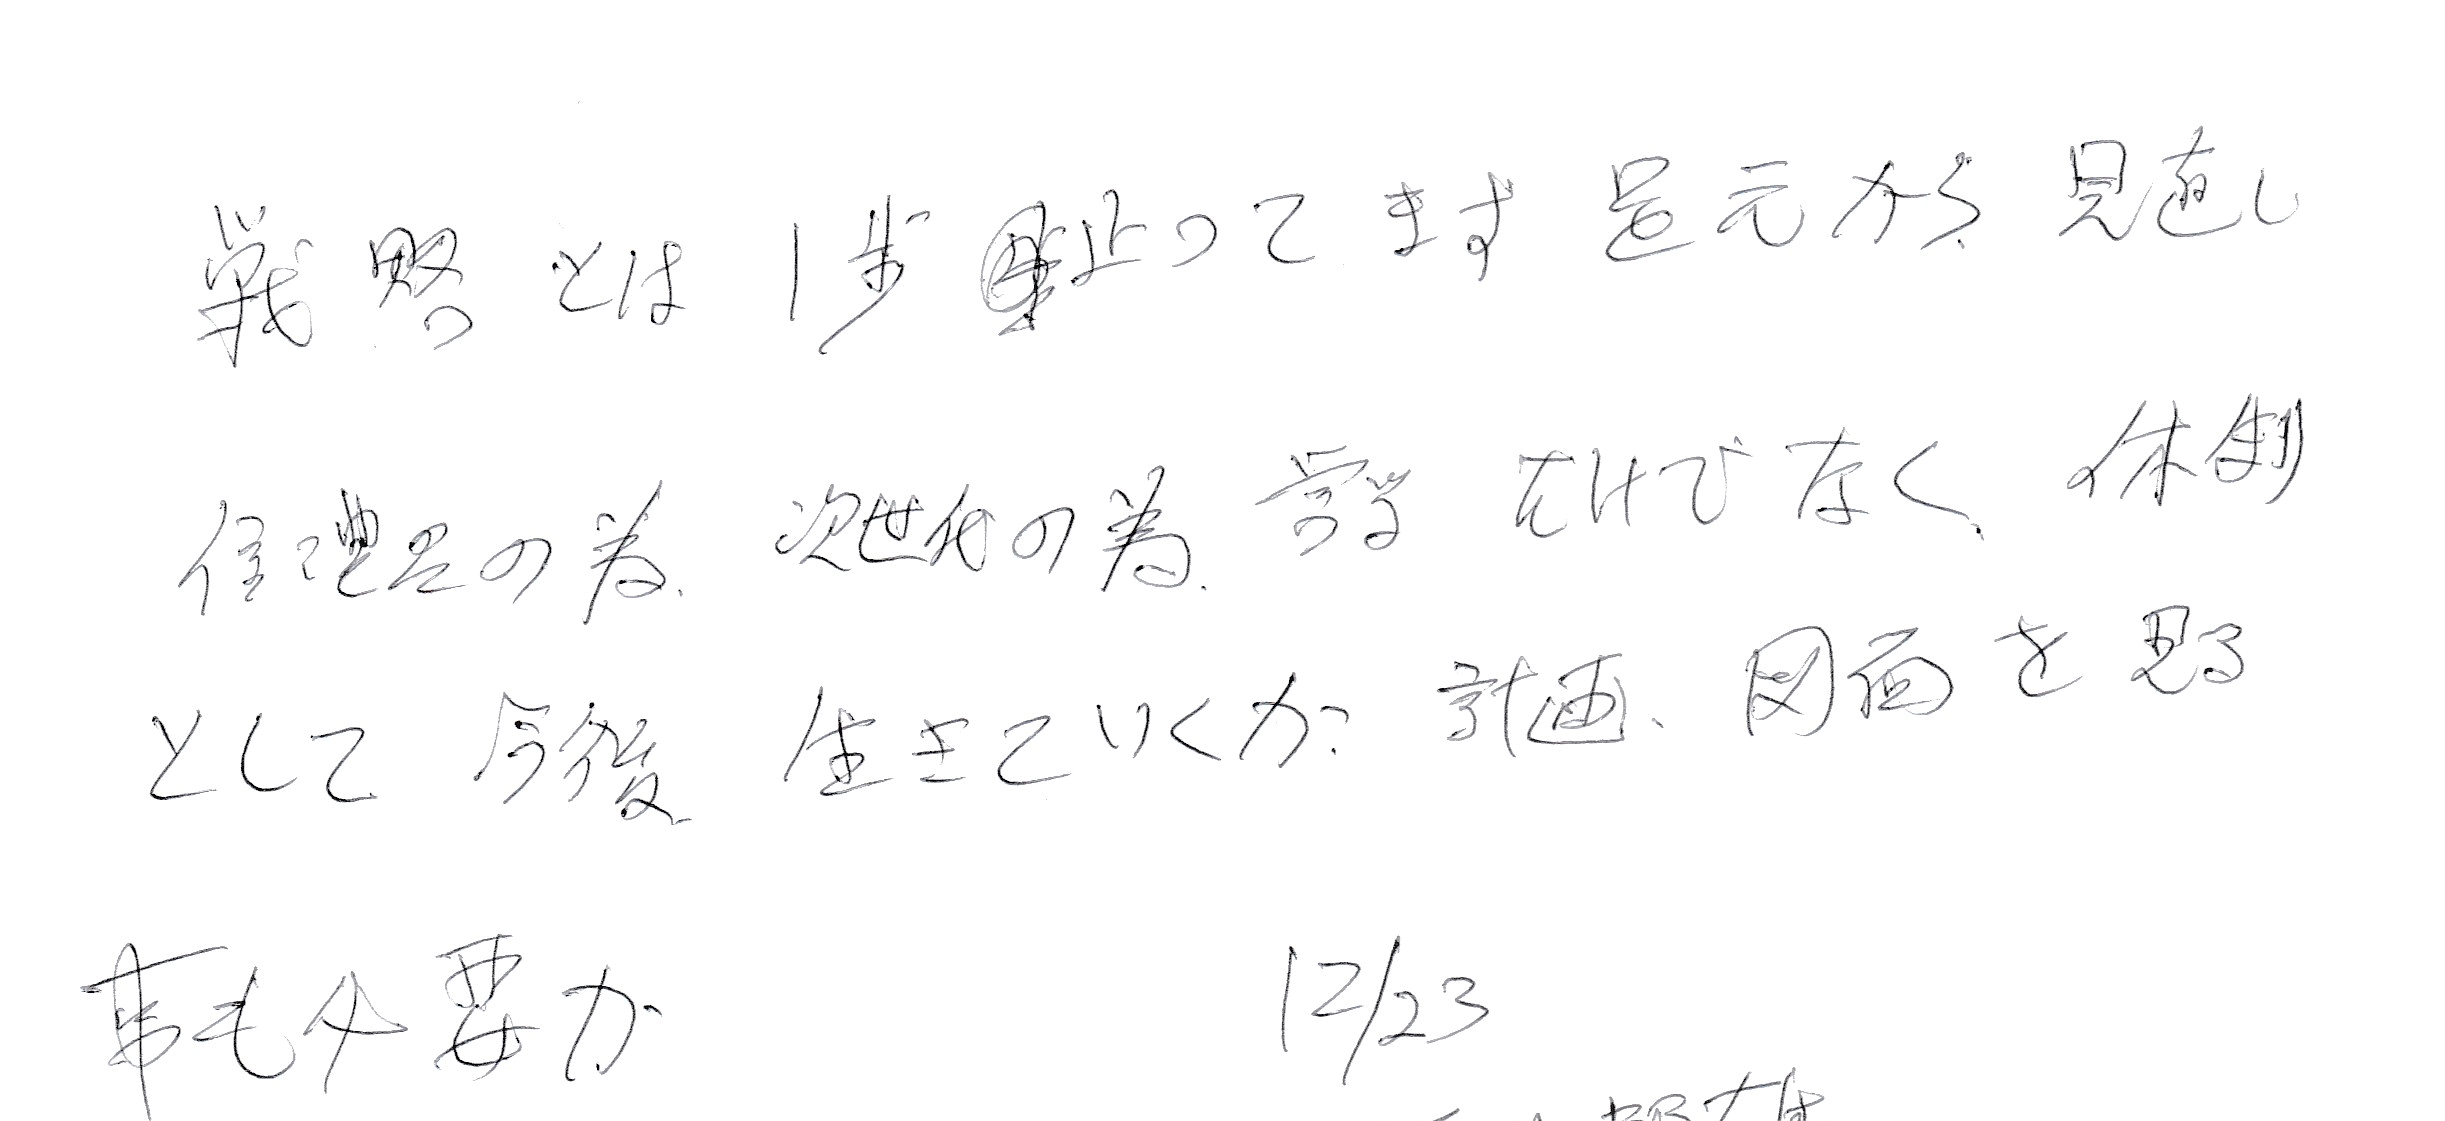 戦略とは 1歩 止って ます 足元から 見直し
の為、次世代の為、 だけでなく、体制
として 今後 生きていくか 計画、図面を見る
事も必要か
12/23